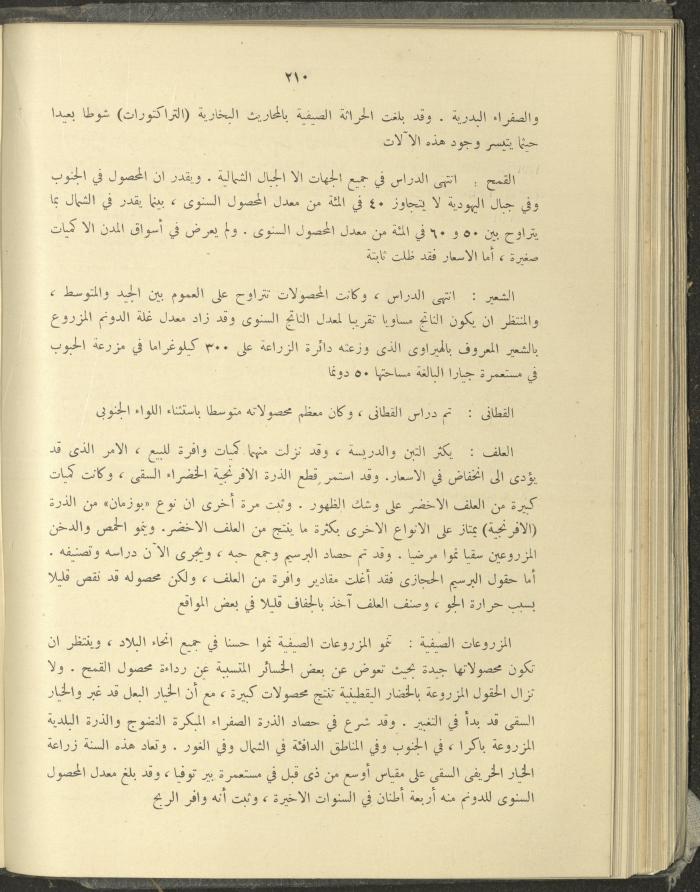 ٢١٠
والصفراء البدرية . وقد بلغت الحراثة الصيفية بالمحاريث البخارية (التراكتورات) شوطا بعيدا
حيثما يتيسر وجود هذه الآلات
القمح : انتهى الدراس في جميع الجهات الا الجبال الشمالية . ويقدر ان المحصول في الجنوب
وفي جبال اليهودية لا يتجاوز ٤٠ في المئة من معدل المحصول السنوى ، بينما يقدر في الشمال بما
يتراوح بين ٥٠ و ٦٠ في المئة من معدل المحصول السنوى . ولم يعرض في أسواق المدن الا كميات
صغيرة ، أما الاسعار فقد ظلت ثابتة
الشعير : انتهى الدراس ، وكانت المحصولات تتراوح على العموم بين الجيد والمتوسط ،
والمنتظر ان يكون الناتج مساويا تقريبا لمعدل الناتج السنوى وقد زاد معدل غلة الدونم المزروع
بالشعير المعروف بالهيراوى الذى وزعته دائرة الزراعة على ٣٠٠ كيلوغراما في مزرعة الحبوب
في مستعمرة جيارا البالغة مساحتها ٥٠ دونما
القطانى : تم دراس القطانى ، وكان معظم محصولاته متوسطا باستثناء اللواء الجنوبى
العلف : يكثر التبن والدريسة ، وقد نزلت منهما كميات وافرة للبيع ، الامر الذى قد
يؤدى الى انخفاض في الاسعار. وقد استمر قطع الذرة الافرنجية الخضراء السقى ، وكانت كميات
كبيرة من العلف الاخضر على وشك الظهور . وثبت مرة أخرى ان نوع «بوزمان» من الذرة
(الافرنجية) يمتاز على الانواع الاخرى بكثرة ما ينتج من العلف الاخضر. وينمو الحمص والدخن
المزروعين سقيا نموا مرضيا . وقد تم حصاد البرسيم وجمع حبه ، ويجرى الآن دراسه وتصنيفه .
أما حقول البرسيم الحجازى فقد أغلت مقادير وافرة من العلف ، ولكن محصوله قد نقص قليلا
بسبب حرارة الجو ، وصنف العلف آخذ بالجفاف قليلا في بعض المواقع
المزروعات الصيفية : تنمو المزروعات الصيفية نموا حسنا في جميع انحاء البلاد ، وينتظر ان
تكون محصولاتها جيدة بحيث تعوض عن بعض الخسائر المتسببة عن رداءة محصول القمح . ولا
تزال الحقول المزروعة بالخضار اليقطينية تنتج محصولات كبيرة ، مع أن الخيار البعل قد غبر والخيار
السقى قد بدأ في التغبير . وقد شرع في حصاد الذرة الصفراء المبكرة النضوج والذرة البلدية
المزروعة باكرا ، في الجنوب وفي المناطق الدافئة في الشمال وفي الغور . وتعاد هذه السنة زراعة
الخيار الخريفى السقى على مقياس أوسع من ذى قبل في مستعمرة بير توفيا ، وقد بلغ معدل المحصول
السنوى للدونم منه أربعة أطنان في السنوات الاخيرة ، وثبت أنه وافر الربح